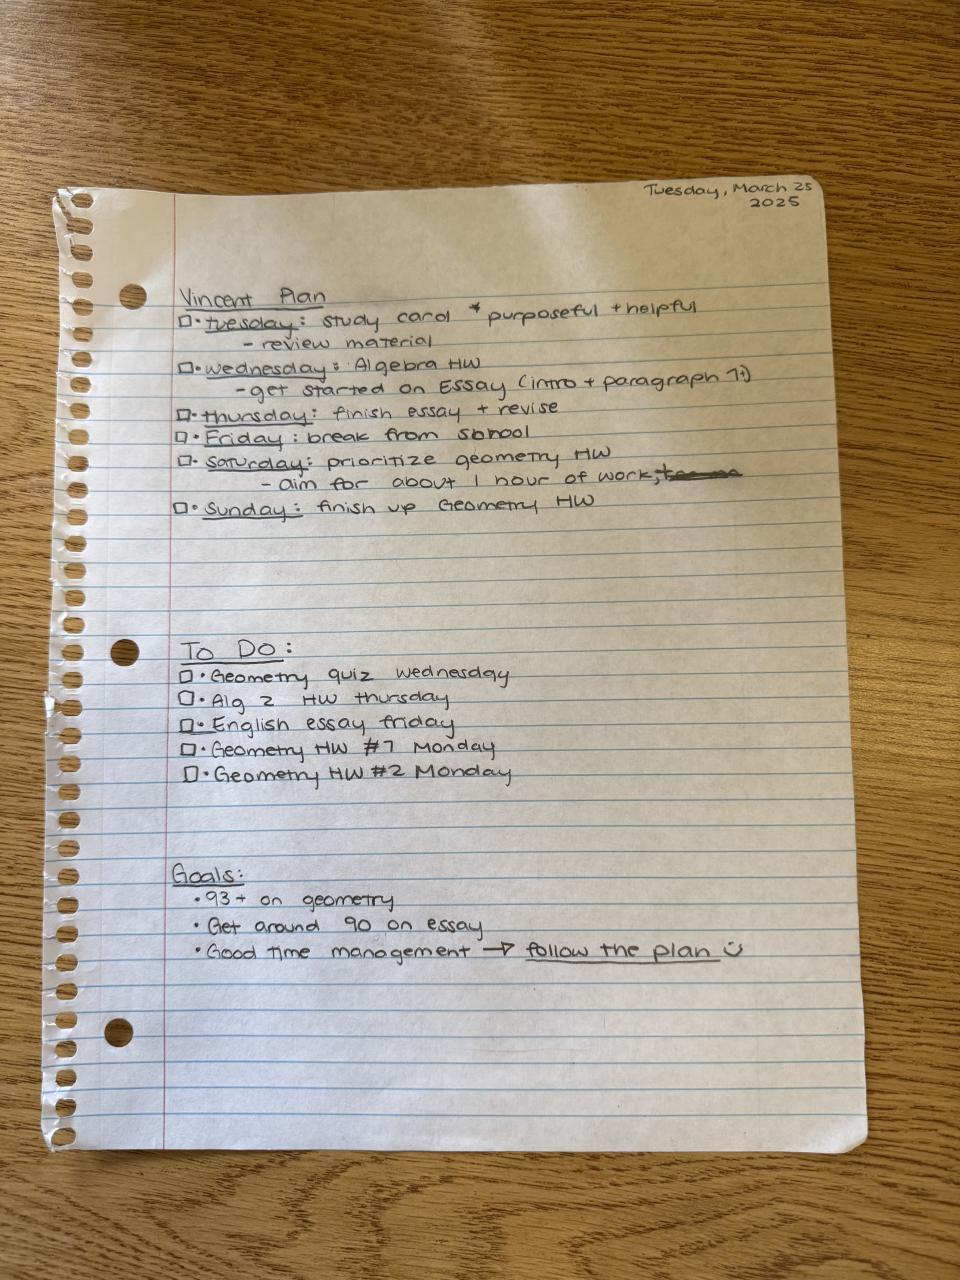 Tuesday, March 25
2025
Vincent Plan
□• tuesday: study card * purposeful + helpful
- review material
□• wednesday: Algebra HW
- get started on Essay (intro + paragraph 1)
□• thursday: finish essay + revise
□• Friday: break from school
□• saturday: prioritize geometry HW
- aim for about 1 hour of work,
□• Sunday: finish up Geometry HW
To Do:
□• Geometry quiz wednesday
□• Alg 2 HW thursday
□• English essay friday
□• Geometry HW #1 Monday
□• Geometry HW #2 Monday
Goals:
• 93+ on geometry
• Get around 90 on essay
• Good time management → follow the plan :)